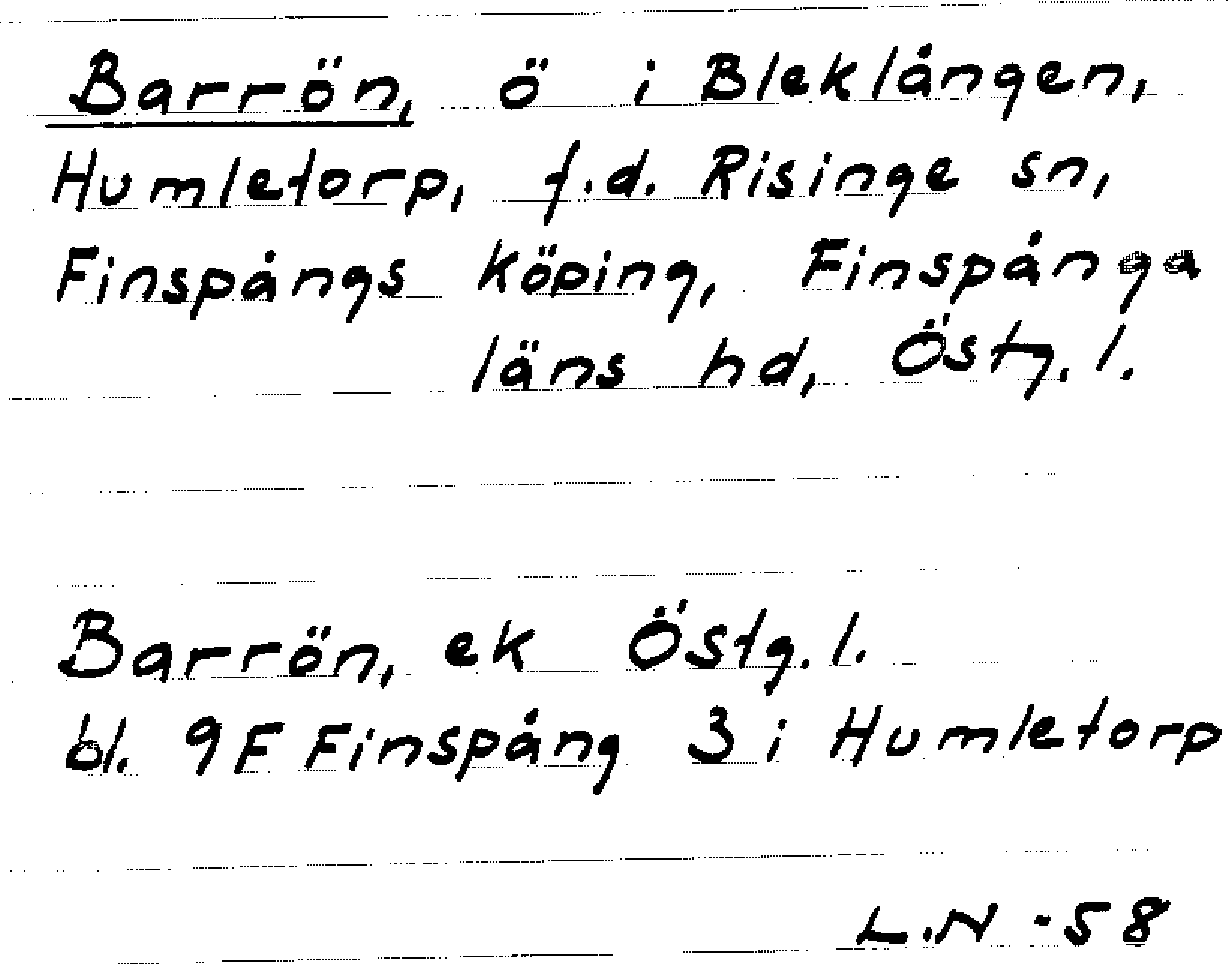 Barrön, ö i Bleklången,
Humletorp, f.d. Risinge sn,
Finspångs köping, Finspånga
läns hd, Östg. l.
Barrön, ek Östg. l.
bl. 9F Finspång 3 i Humletorp
L.N -58